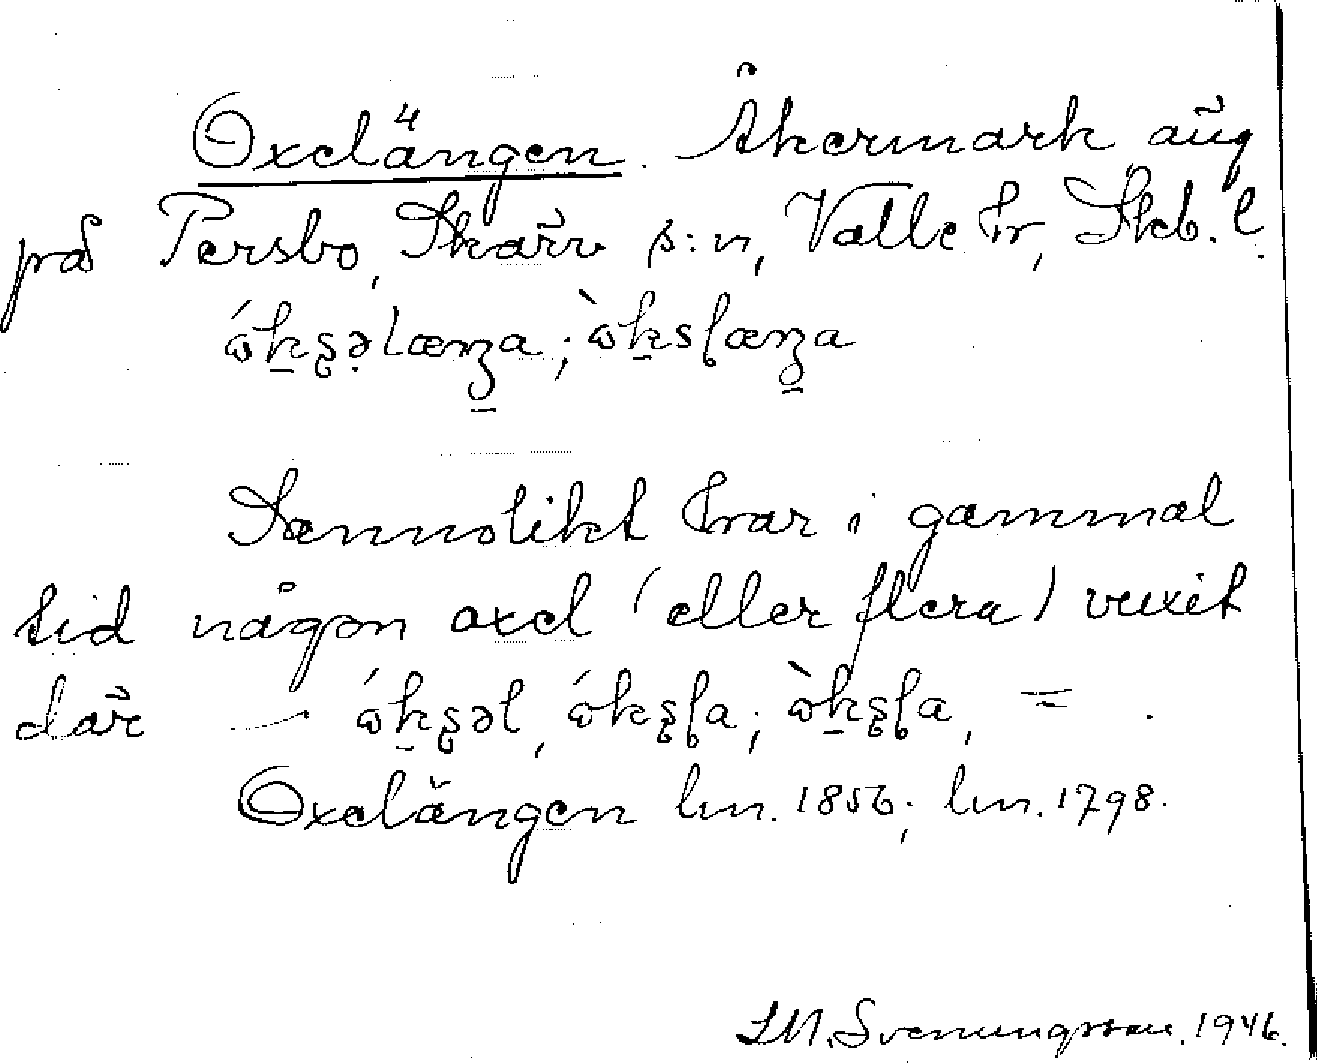 Oxelängen. Åkermark, äng
på Persbo, Skärv s:n, Valle hr, Skb. l.
ó̱kʂəlæŋa; òksɭæŋa
Sannolikt har i gammal
tid någon oxel (eller flera) vuxit
där — ókʂəl, ókʂɭa; òkʂɭa, = .
Oxelängen lm. 1856; lm. 1798.
LM. Svenungsson. 1946.